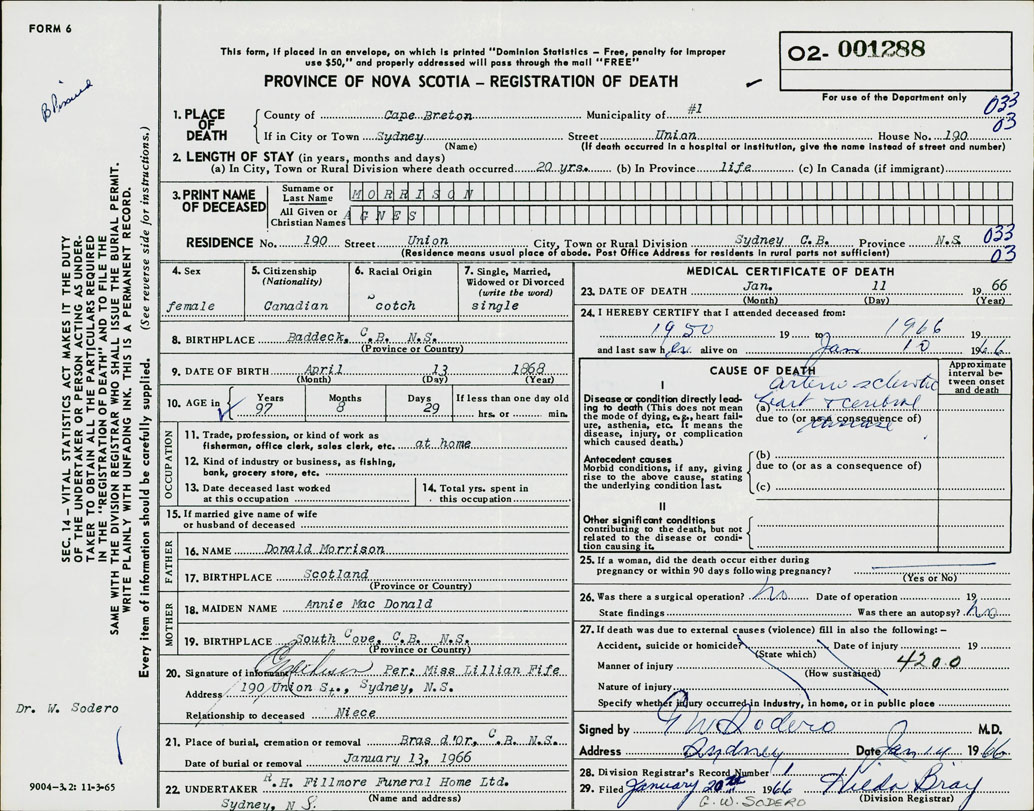 FORM 6
This form, if placed in an envelope, on which is printed "Dominion Statistics – Free, penalty for improper
use $50," and properly addressed will pass through the mail "FREE"
PROVINCE OF NOVA SCOTIA – REGISTRATION OF DEATH
O2- 001288
For use of the Department only
033
03
1. PLACE OF DEATH
County of Cape Breton Municipality of #1
If in City or Town Sydney Street Union House No. 190
(Name) (If death occurred in a hospital or institution, give the name instead of street and number)
2. LENGTH OF STAY (in years, months and days)
(a) In City, Town or Rural Division where death occurred 20 yrs. (b) In Province life (c) In Canada (if immigrant)
3. PRINT NAME OF DECEASED
Surname or Last Name MORRISON
All Given or Christian Names AGNES
RESIDENCE No. 190 Street Union City, Town or Rural Division Sydney C.B. Province N.S.
(Residence means usual place of abode. Post Office Address for residents in rural parts not sufficient)
033
03
4. Sex
female
5. Citizenship
(Nationality)
Canadian
6. Racial Origin
Scotch
7. Single, Married,
Widowed or Divorced
(write the word)
single
8. BIRTHPLACE Baddeck, C.B. N.S.
(Province or Country)
9. DATE OF BIRTH April 13 1868
(Month) (Day) (Year)
10. AGE in Years Months Days If less than one day old
97 8 29 hrs. or min.
OCCUPATION
11. Trade, profession, or kind of work as
fisherman, office clerk, sales clerk, etc. at home
12. Kind of industry or business, as fishing,
bank, grocery store, etc.
13. Date deceased last worked
at this occupation
14. Total yrs. spent in
this occupation
15. If married give name of wife
or husband of deceased
FATHER
16. NAME Donald Morrison
17. BIRTHPLACE Scotland
(Province or Country)
MOTHER
18. MAIDEN NAME Annie Mac Donald
19. BIRTHPLACE South Cove, C.B. N.S.
(Province or Country)
20. Signature of informant Per: Miss Lillian Fife
Address 190 Union St., Sydney, N.S.
Relationship to deceased Niece
21. Place of burial, cremation or removal Bras d'Or, C.B. N.S.
Date of burial or removal January 13, 1966
22. UNDERTAKER R.H. Fillmore Funeral Home Ltd.
(Name and address)
Sydney, N S.
MEDICAL CERTIFICATE OF DEATH
23. DATE OF DEATH Jan. 11 19 66
(Month) (Day) (Year)
24. I HEREBY CERTIFY that I attended deceased from:
1950 19 to 1966 19
and last saw her alive on Jan 10 1966
CAUSE OF DEATH
Approximate
interval be-
tween onset
and death
I
Disease or condition directly lead-
ing to death (This does not mean
the mode of dying, e.g., heart fail-
ure, asthenia, etc. It means the
disease, injury, or complication
which caused death.)
arterio sclerotic
(a) heart & cerebral
due to (or as a consequence of)
Antecedent causes
Morbid conditions, if any, giving
rise to the above cause, stating
the underlying condition last.
(b)
due to (or as a consequence of)
(c)
II
Other significant conditions
contributing to the death, but not
related to the disease or condi-
tion causing it.
25. If a woman, did the death occur either during
pregnancy or within 90 days following pregnancy?
(Yes or No)
26. Was there a surgical operation? no Date of operation 19
State findings Was there an autopsy? no
27. If death was due to external causes (violence) fill in also the following: –
Accident, suicide or homicide? Date of injury 19
(State which)
4200
Manner of injury
(How sustained)
Nature of injury
Specify whether injury occurred in industry, in home, or in public place
Signed by G W Sodero M.D.
Address Sydney Date Jan 14 1966
28. Division Registrar's Record Number 1
29. Filed January 20th 1966 Hilda Bray
(Division Registrar)
G. W. SODERO
SEC. 14 – VITAL STATISTICS ACT MAKES IT THE DUTY
OF THE UNDERTAKER OR PERSON ACTING AS UNDER-
TAKER TO OBTAIN ALL THE PARTICULARS REQUIRED
IN THE "REGISTRATION OF DEATH" AND TO FILE THE
SAME WITH THE DIVISION REGISTRAR WHO SHALL ISSUE THE BURIAL PERMIT.
WRITE PLAINLY WITH UNFADING INK. THIS IS A PERMANENT RECORD.
Every item of information should be carefully supplied. (See reverse side for instructions.)
Dr. W. Sodero
9004-3.2: 11-3-65